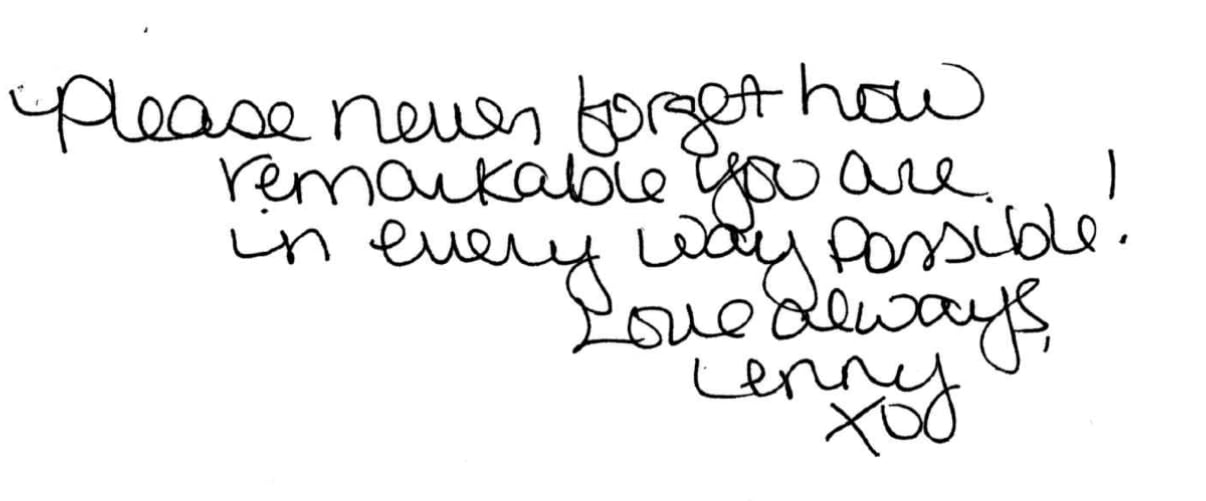 Please never forget how
remarkable you are
in every way possible!
Love always,
Lenny
XOO